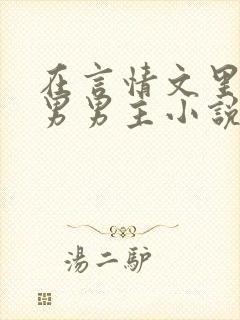 在言情文里
男男主小說
湯二驴